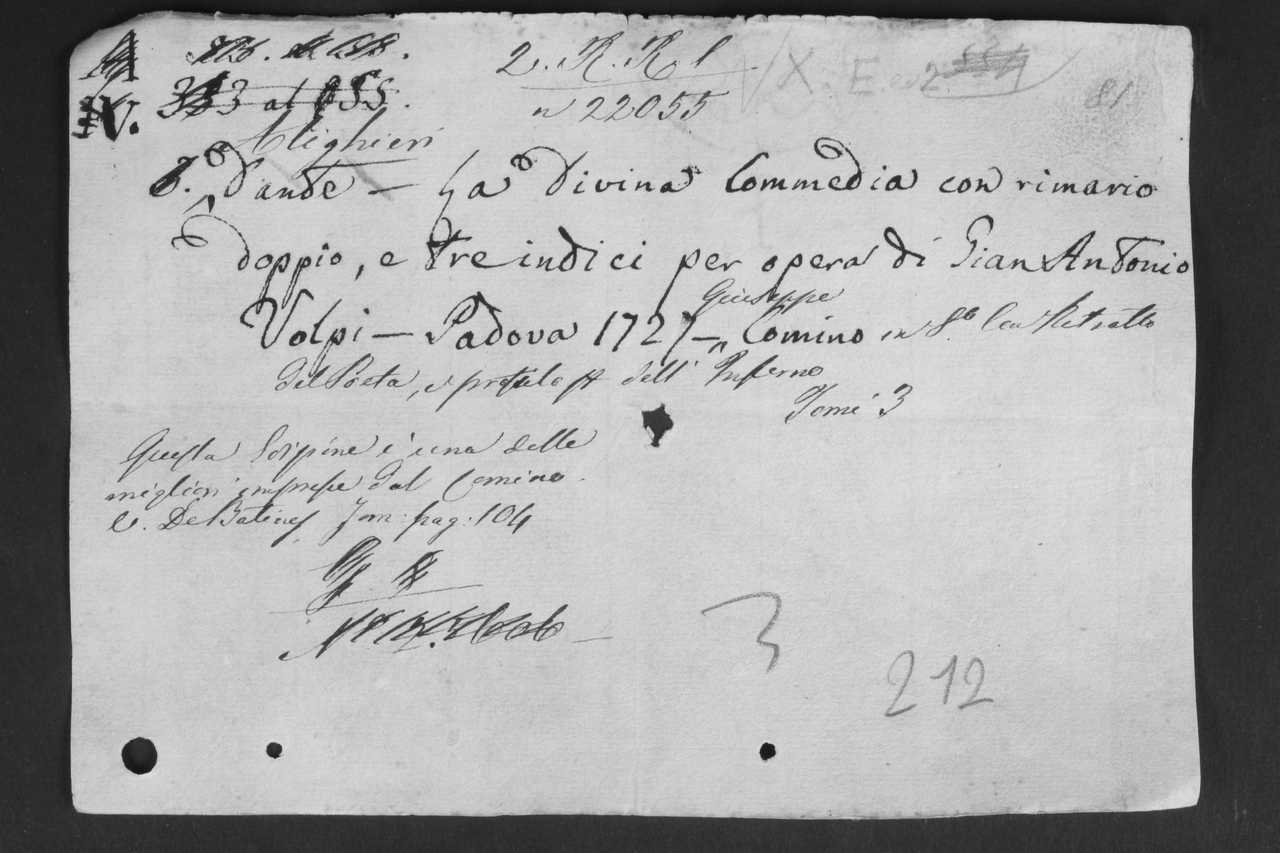 2. R. R. l
X. E. 2
81
IV. 333 al 655.
n 22055
Alighieri
Dante — La Divina Commedia con rimario
doppio, e tre indici per opera di Gian Antonio
Giuseppe
Volpi — Padova 1727 — Comino in 8.º Con Ritratto
del Poeta, e dell' Inferno
Tomi 3
Questa è una delle
migliori imprese dal Comino.
V. De Batines Tom: pag: 104
3
212